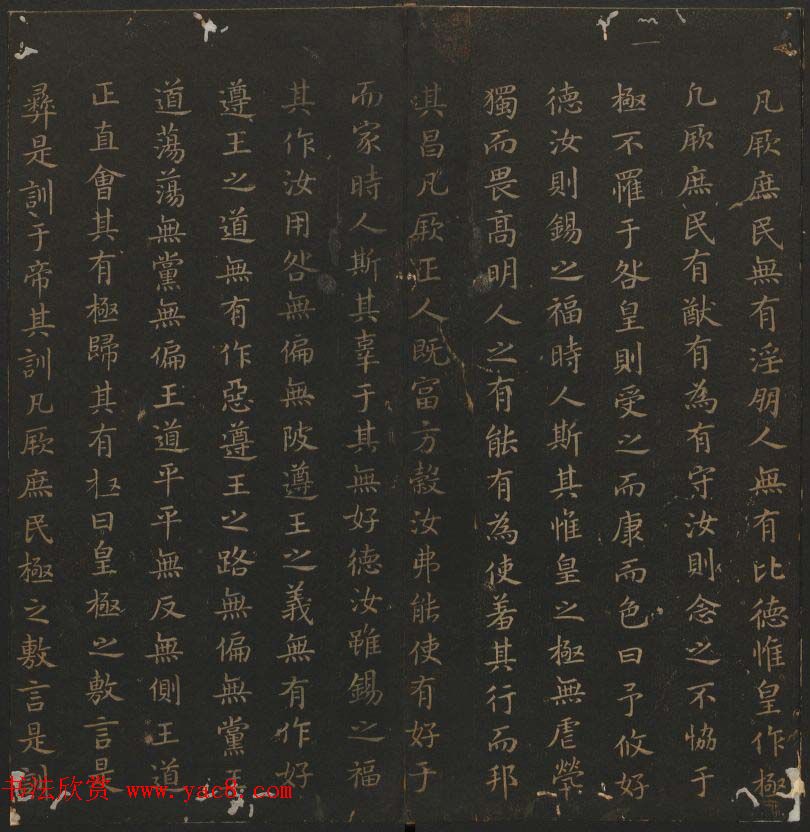 凡厥庶民無有淫朋人無有比德惟皇作極
凡厥庶民有猷有為有守汝則念之不恊于
極不罹于咎皇則受之而康而色曰予攸好
德汝則錫之福時人斯其惟皇之極無虐煢
獨而畏髙明人之有能有為使羞其行而邦
其昌凡厥正人既富方穀汝弗能使有好于
而家時人斯其辜于其無好德汝雖錫之福
其作汝用咎無偏無陂遵王之義無有作好
遵王之道無有作惡遵王之路無偏無黨王
道蕩蕩無黨無偏王道平平無反無側王道
正直會其有極歸其有極曰皇極之敷言是
彝是訓于帝其訓凡厥庶民極之敷言是訓
书法欣赏 www.yac8.com